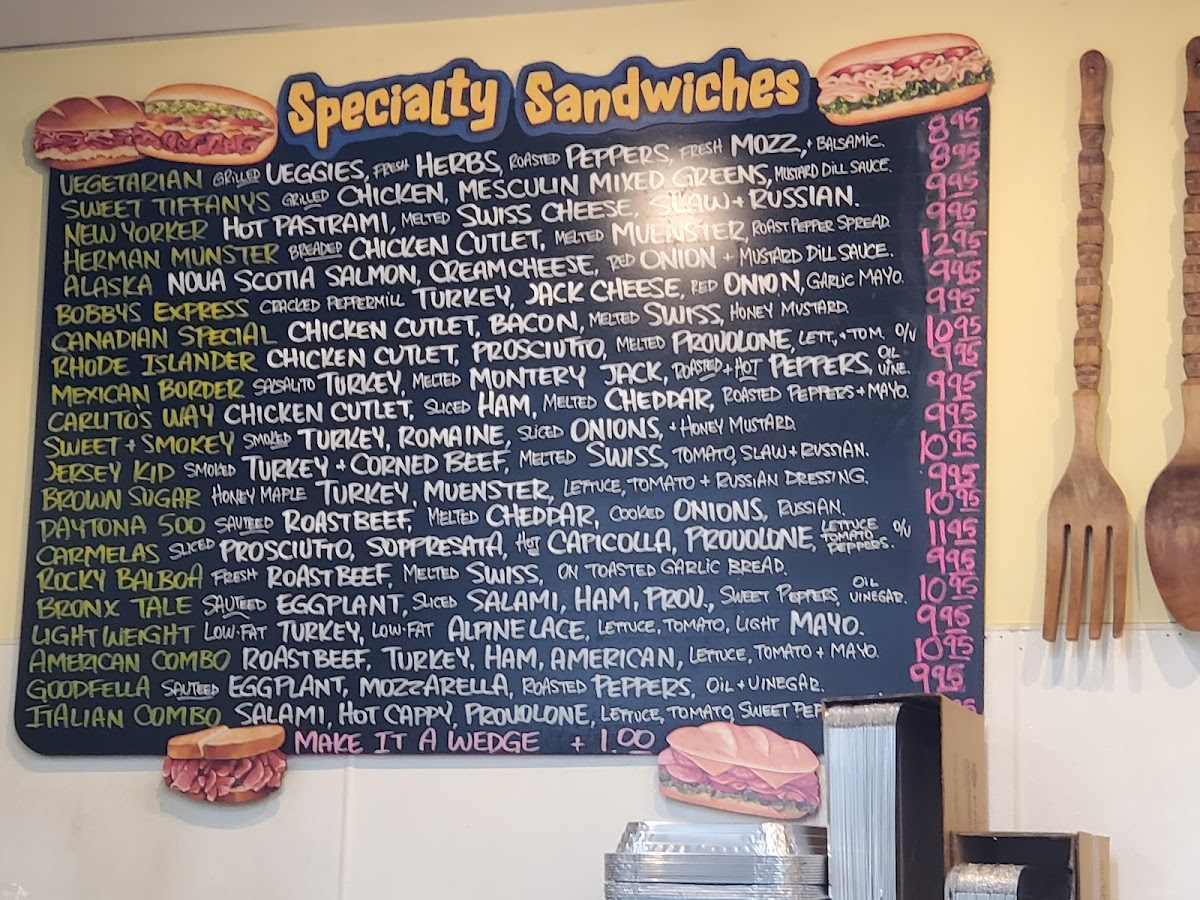 Specialty Sandwiches
VEGETARIAN GRILLED VEGGIES, FRESH HERBS, ROASTED PEPPERS, FRESH MOZZ, + BALSAMIC. 8.95
SWEET TIFFANYS GRILLED CHICKEN, MESCULIN MIXED GREENS, MUSTARD DILL SAUCE. 8.95
NEW YORKER HOT PASTRAMI, MELTED SWISS CHEESE, SLAW + RUSSIAN. 9.95
HERMAN MUNSTER BREADED CHICKEN CUTLET, MELTED MUENSTER, ROAST PEPPER SPREAD 9.95
ALASKA NOVA SCOTIA SALMON, CREAM CHEESE, RED ONION + MUSTARD DILL SAUCE. 12.95
BOBBYS EXPRESS CRACKED PEPPERMILL TURKEY, JACK CHEESE, RED ONION, GARLIC MAYO. 9.95
CANADIAN SPECIAL CHICKEN CUTLET, BACON, MELTED SWISS, HONEY MUSTARD. 9.95
RHODE ISLANDER CHICKEN CUTLET, PROSCIUTTO, MELTED PROVOLONE, LETT, + TOM. O/V 10.95
MEXICAN BORDER SALSALITO TURKEY, MELTED MONTERY JACK, ROASTED + HOT PEPPERS, OIL VINE. 9.95
CARLITO'S WAY CHICKEN CUTLET, SLICED HAM, MELTED CHEDDAR, ROASTED PEPPERS + MAYO. 9.95
SWEET + SMOKEY SMOKED TURKEY, ROMAINE, SLICED ONIONS, + HONEY MUSTARD. 9.95
JERSEY KID SMOKED TURKEY + CORNED BEEF, MELTED SWISS, TOMATO, SLAW + RUSSIAN. 10.95
BROWN SUGAR HONEY MAPLE TURKEY, MUENSTER, LETTUCE, TOMATO + RUSSIAN DRESSING. 9.95
DAYTONA 500 SAUTEED ROAST BEEF, MELTED CHEDDAR, COOKED ONIONS, RUSSIAN. 10.95
CARMELAS SLICED PROSCIUTTO, SOPPRESATA, HOT CAPICOLLA, PROVOLONE, LETTUCE TOMATO PEPPERS. O/V 11.95
ROCKY BALBOA FRESH ROAST BEEF, MELTED SWISS, ON TOASTED GARLIC BREAD. 9.95
BRONX TALE SAUTEED EGGPLANT, SLICED SALAMI, HAM, PROV., SWEET PEPPERS, OIL VINEGAR. 10.95
LIGHT WEIGHT LOW-FAT TURKEY, LOW-FAT ALPINE LACE, LETTUCE, TOMATO, LIGHT MAYO. 9.95
AMERICAN COMBO ROAST BEEF, TURKEY, HAM, AMERICAN, LETTUCE, TOMATO + MAYO. 10.95
GOODFELLA SAUTEED EGGPLANT, MOZZARELLA, ROASTED PEPPERS, OIL + VINEGAR. 9.95
ITALIAN COMBO SALAMI, HOT CAPPY, PROVOLONE, LETTUCE, TOMATO, SWEET PEP
MAKE IT A WEDGE + 1.00